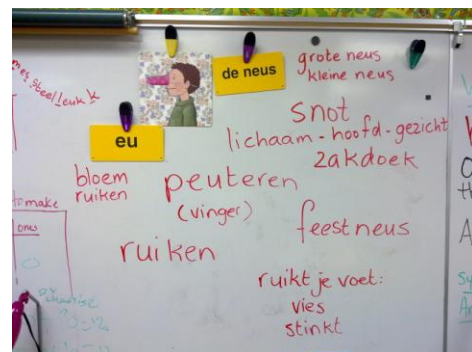 de neus
grote neus
kleine neus
eu
snot
lichaam - hoofd - gezicht
zakdoek
bloem
ruiken
peuteren
(vinger)
feestneus
ruiken
ruikt je voet:
vies
stinkt
to make
ones